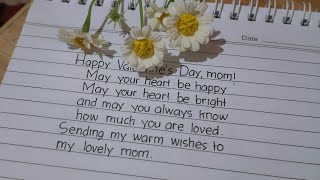 Date
Happy Valentine's Day, mom!
May your heart be happy
May your heart be bright
and may you always know
how much you are loved.
Sending my warm wishes to
my lovely mom.